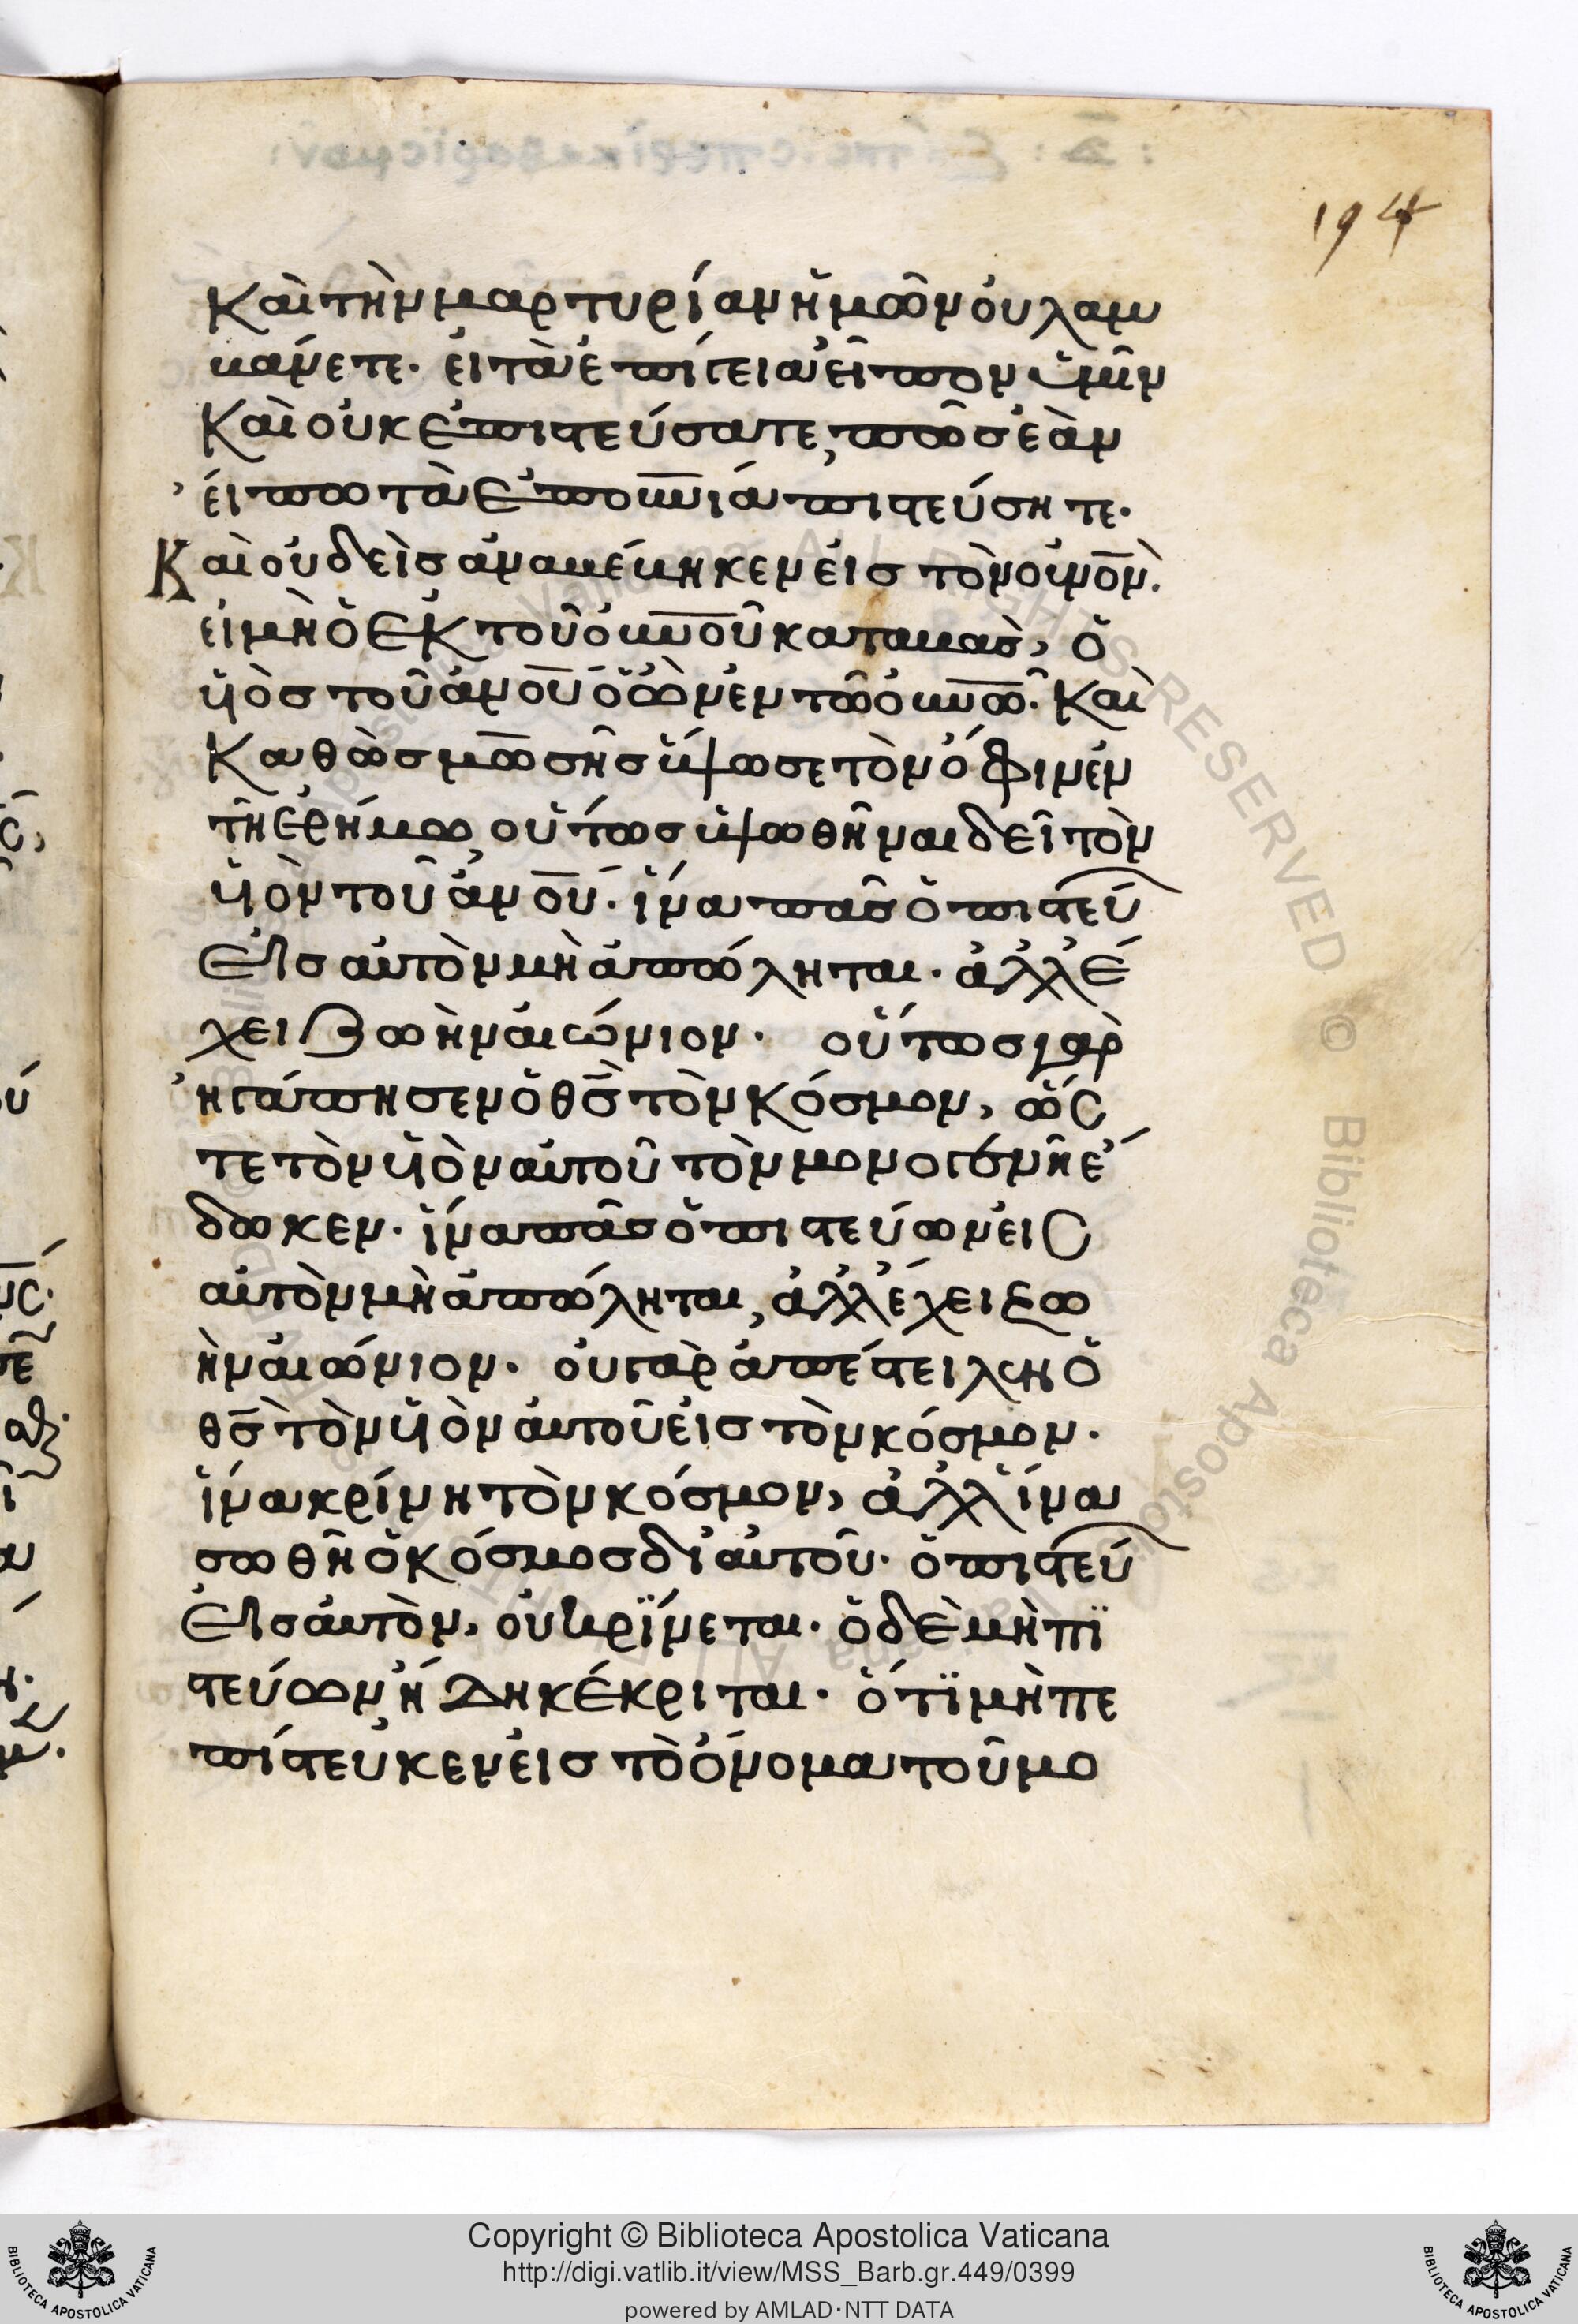 194
Καὶ τὴν μαρτυρίαν ἡμῶν οὐ λαμ
βάνετε. εἰ τὰ ἐπίγεια εἶπον ὑμῖν
Καὶ οὐκ ἐπιστεύσατε, πῶς ἐὰν
εἴπω τὰ ἐπουνια πιστεύσητε.
Καὶ οὐδεὶς ἀναβέβηκεν εἰς τὸν οὐνον.
εἰ μὴ ὁ ἐκ τοῦ οὐνου καταβας, ὁ
υἱὸς τοῦ ανου ὁ ὢν ἐν τῶ οὐνω. Καὶ
Καθὼς μωσῆς ὕψωσε τὸν ὄφιν ἐν
τῆ ἐρήμω, οὕτως ὑψωθῆναι δεῖ τὸν
υἱὸν τοῦ ανου. ἵνα πᾶς ὁ πιστεύ
εις αὐτὸν μὴ ἀπώληται. ἀλλ ἔ
χει ζωὴν αἰώνιον. οὕτως γὰρ
ἠγάπησεν ὁ θς τὸν κόσμον, ὥς
τε τὸν υἱὸν αὐτοῦ τὸν μονογενῆ ἔ
δωκεν. ἵνα πᾶς ὁ πιστεύων εἰς
αὐτὸν μὴ ἀπώληται, ἀλλ ἔχει ζω
ὴν αἰώνιον. οὐ γὰρ ἀπέστειλεν ὁ
θς τὸν υἱὸν αὐτοῦ εἰς τὸν κόσμον.
ἵνα κρίνη τὸν κόσμον, ἀλλ ἵνα
σωθῆ ὁ κόσμος δι αὐτοῦ. ὁ πιστεύ
εις αὐτὸν, οὐ κρίνεται. ὁ δὲ μὴ πι
στεύων ἤδη κέκριται. ὅτι μὴ πε
πίστευκεν εἰς τὸ ὄνομα τοῦ μο
Copyright © Biblioteca Apostolica Vaticana
http://digi.vatlib.it/view/MSS_Barb.gr.449/0399
powered by AMLAD·NTT DATA